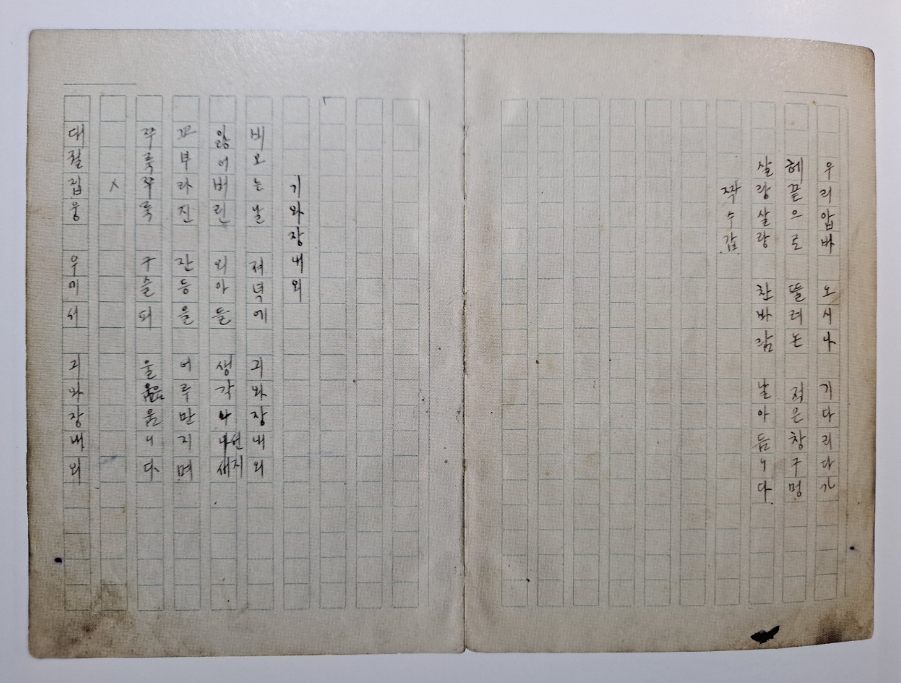 우리압바 오시나 기다리다가
헤끝으로 뚤려논 적은창구멍
살랑살랑 찬바람 날아듬니다
기와장내외
비오는날 저녁에 긔와장내외
잃어버린 외아들 생각나선지
꼬부라진 잔등을 어루만지며
쭈룩쭈룩 구슬피 울음움니다
대궐집웅 우이서 긔와장내외